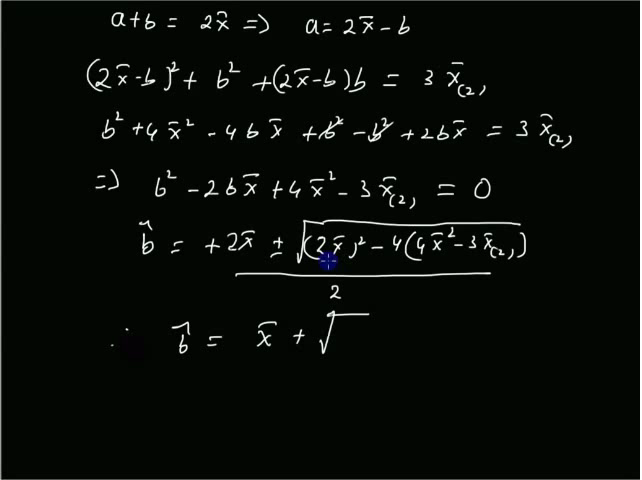 a+b = 2x̄ => a = 2x̄ - b
(2x̄-b)² + b² + (2x̄-b)b = 3x̄₍₂₎
b² + 4x̄² - 4bx̄ + b² - b² + 2bx̄ = 3x̄₍₂₎
=> b² - 2bx̄ + 4x̄² - 3x̄₍₂₎ = 0
b̂ = +2x̄ ± √((2x̄)² - 4(4x̄² - 3x̄₍₂₎))
2
∴ b̂ = x̄ + √